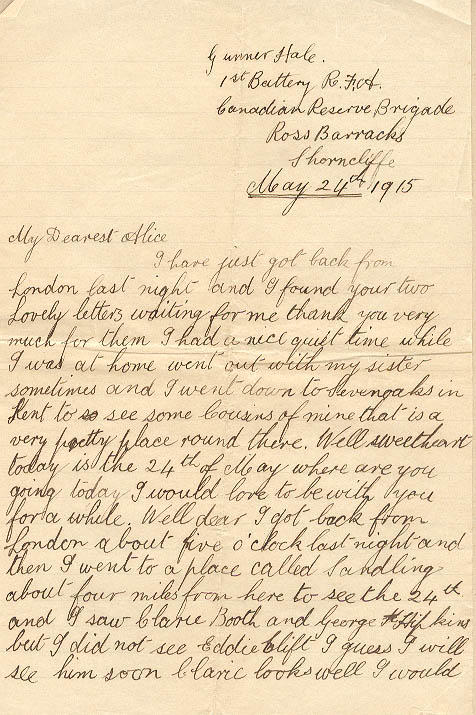 Gunner Hale.
1st Battery R.F.A.
Canadian Reserve Brigade
Ross Barracks
Shorncliffe
May 24th 1915
My Dearest Alice
I have just got back from
London last night and I found your two
Lovely letters waiting for me thank you very
much for them I had a nict quiet time while
I was at home went out with my sister
sometimes and I went down to Sevenoaks in
Kent to so see some Cousins of mine that is a
very pretty place round there. Well sweetheart
today is the 24th of May where are you
going today I would love to be with you
for a while. Well dear I got back from
London about five o'clock last night and
then I went to a place called Sandling
about four miles from here to see the 24th
and I saw Claric Booth and George Hipkins
but I did not see Eddie Clift I guess I will
see him soon Claric looks well I would